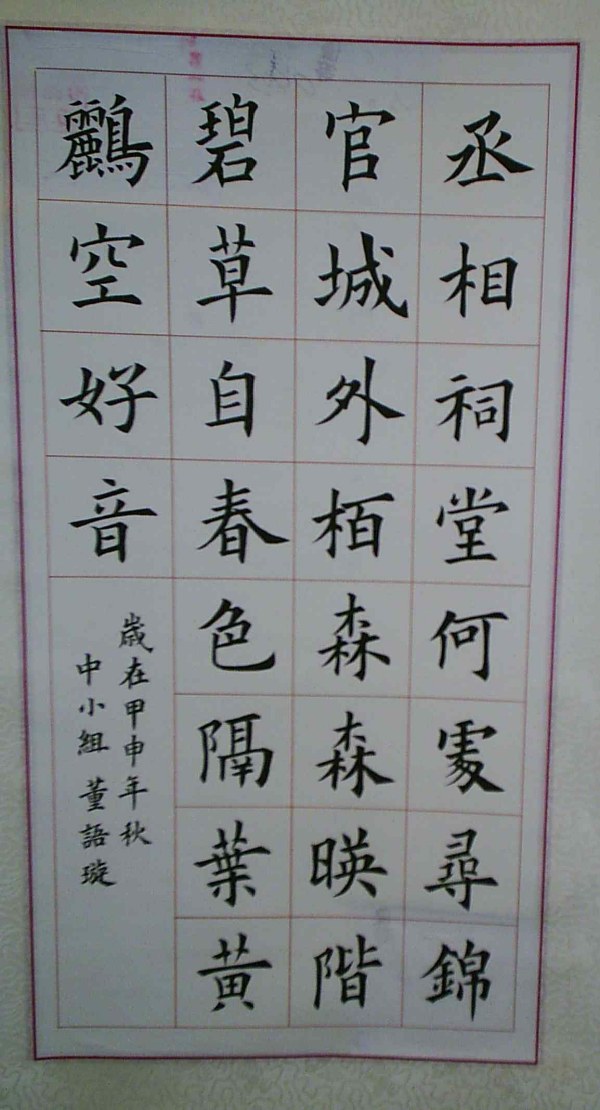 丞相祠堂何處尋錦
官城外栢森森暎階
碧草自春色隔葉黃
鸝空好音
歲在甲申年秋
中小組 董語璇